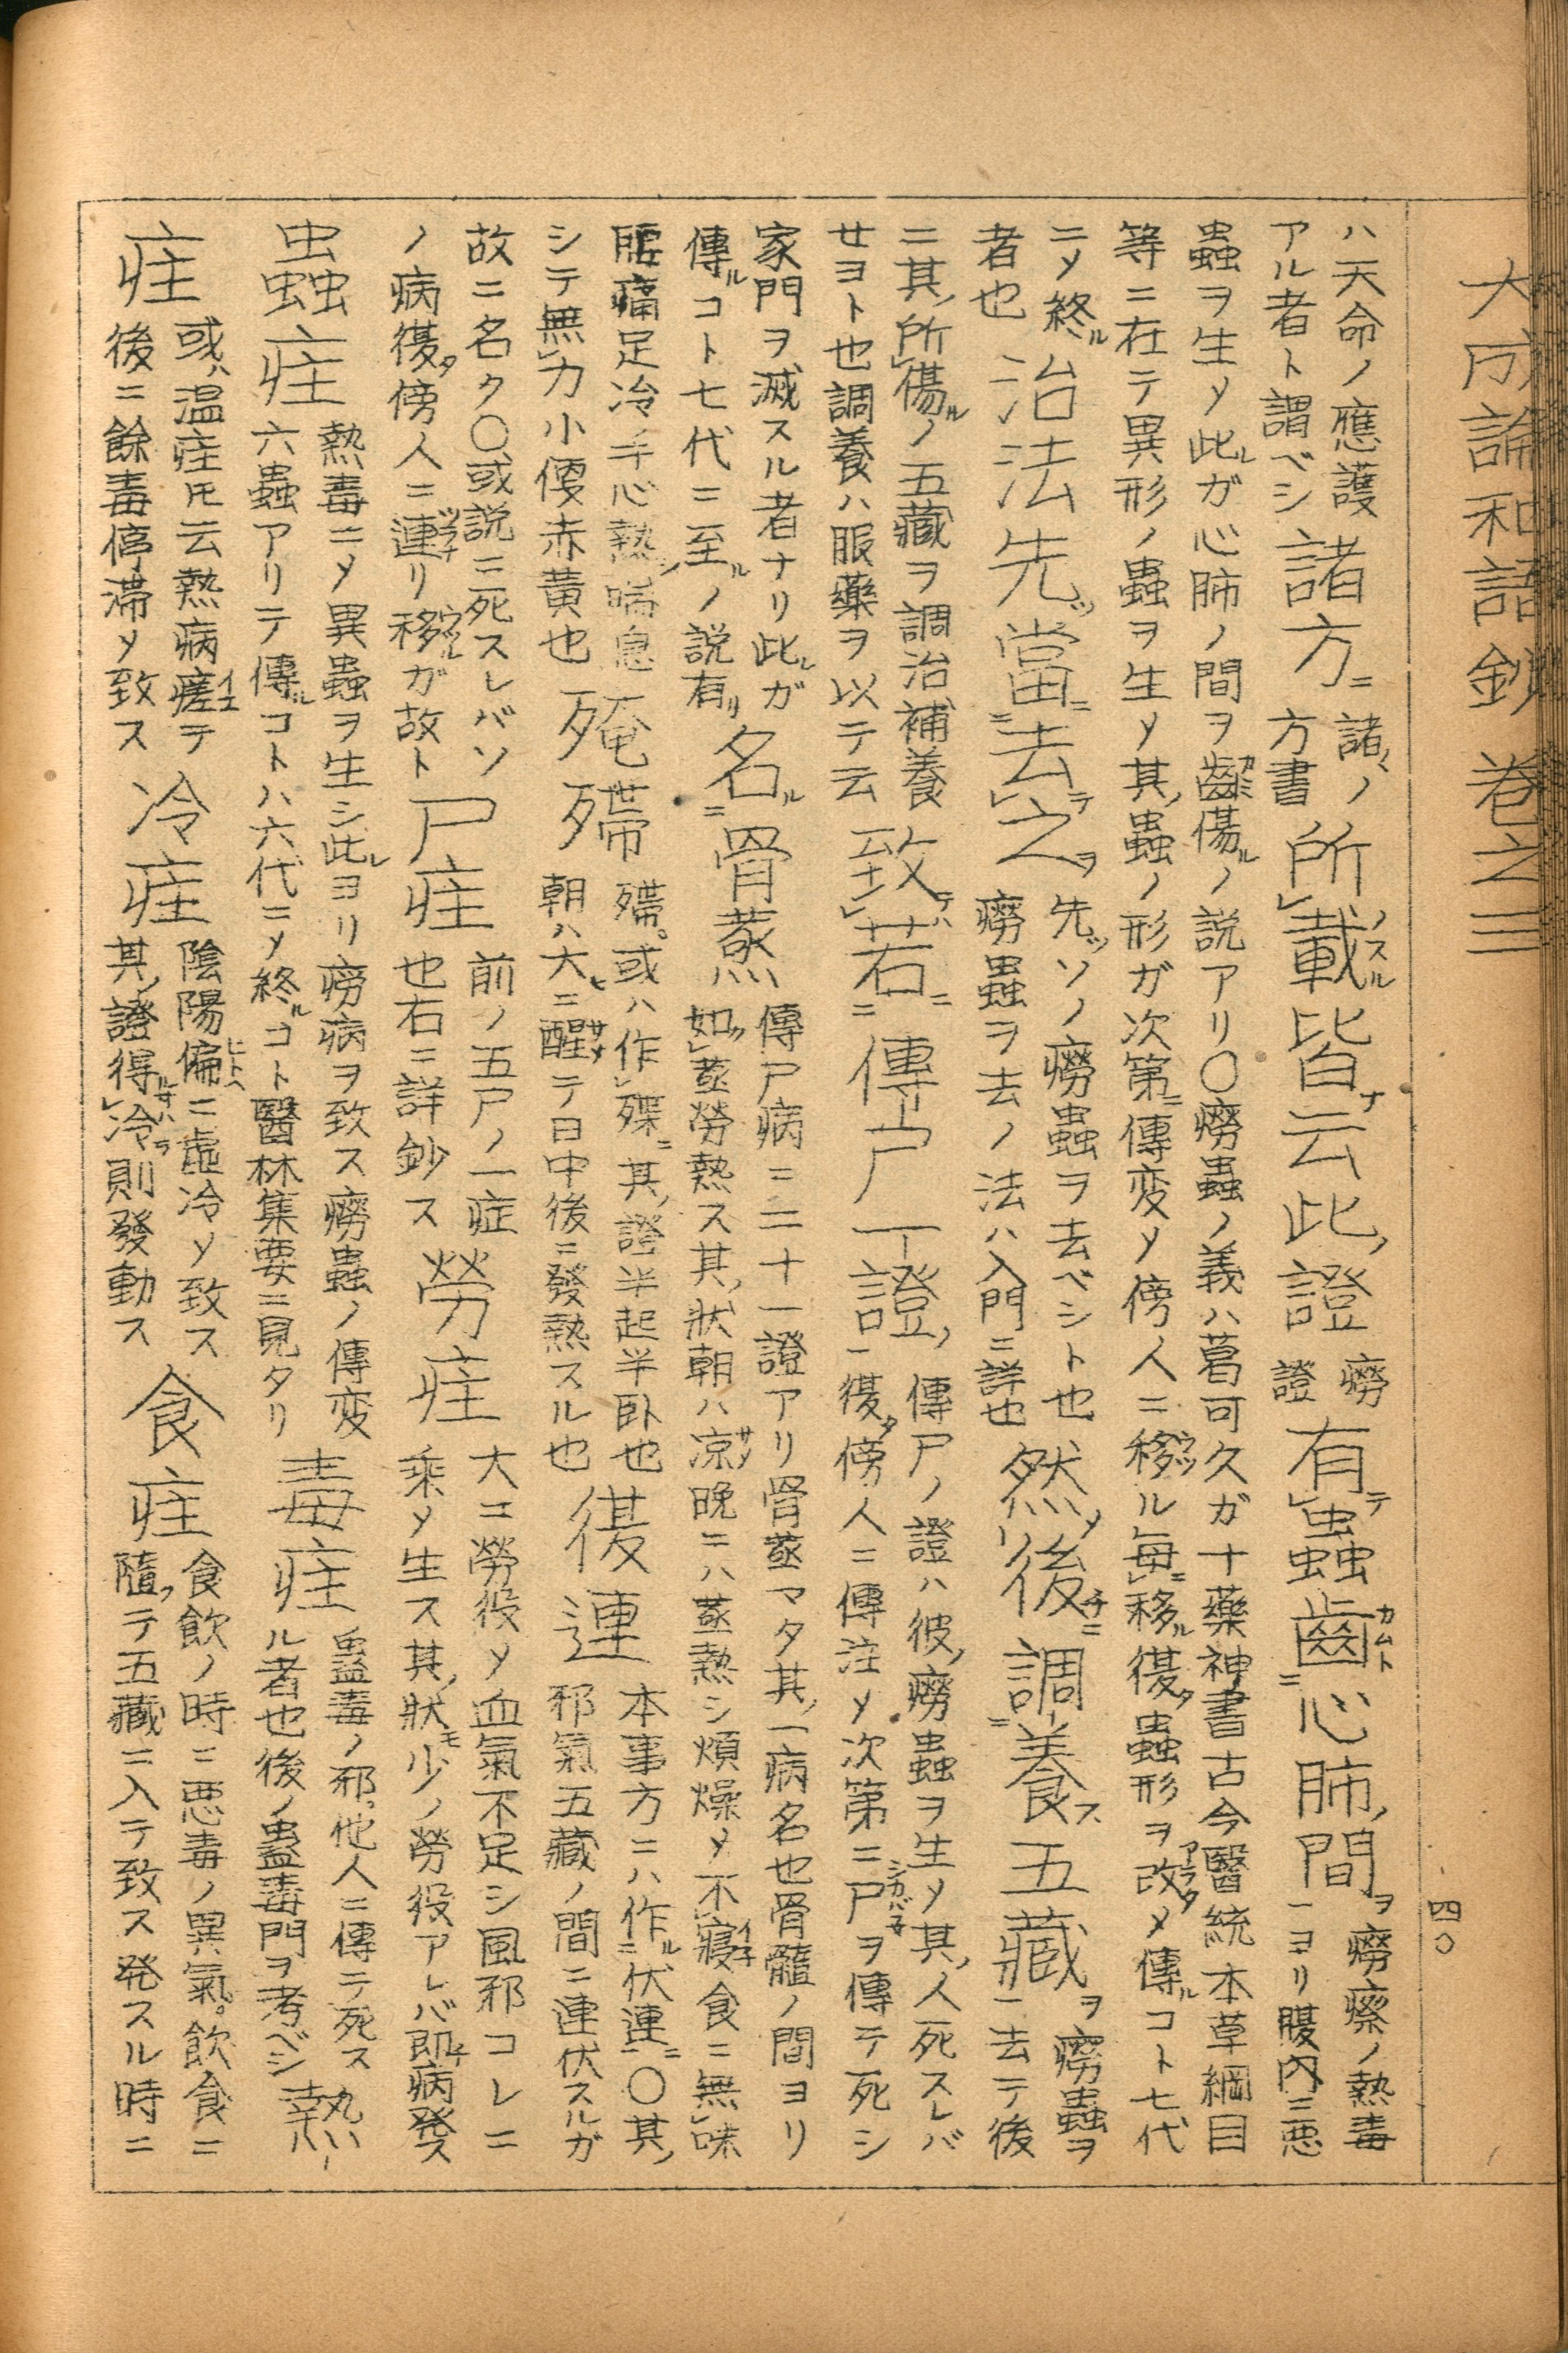 大成論和語鈔 巻之三
四〇
ハ天命ノ應護
アル者ト謂ベシ
諸方
ニ諸ノ
方書
所載皆云此證
癆
證
有蟲齒心肺間
ヲ癆瘵ノ熱毒
ヨリ腹内ニ悪
蟲ヲ生〆此ガ心肺ノ間ヲ齧傷ルノ説アリ〇癆蟲ノ義ハ葛可久ガ十藥神書古今醫統本草綱目
等ニ在テ異形ノ蟲ヲ生〆其蟲ノ形ガ次第ニ傳変〆傍人ニ移ル毎移ル復蟲形ヲ改メ傳ルコト七代
ニ〆終ル
者也
治法先當去之
先ソノ癆蟲ヲ去ベシト也
癆蟲ヲ去ノ法ハ入門ニ詳也
然後調養五藏
ヲ癆蟲ヲ
去テ後
ニ其所傷ルノ五藏ヲ調治補養
セヨト也調養ハ服藥ヲ以テ云
致若傳尸一證
傳尸ノ證ハ彼癆蟲ヲ生〆其人死スレバ
復傍人ニ傳注〆次第ニ尸ヲ傳テ死シ
家門ヲ滅スル者ナリ此ガ
傳ルコト七代ニ至ルノ説有リ
名骨蒸
傳尸病ニ二十一證アリ骨蒸マタ其一病名也骨髓ノ間ヨリ
如蒸勞熱ス其狀朝ハ凉晩ニハ蒸熱シ煩燥〆不寢食ニ無味
腰痛足冷手心熱喘息
シテ無力小便赤黄也
殗殢
殢或ハ作殜其證半起半卧也
朝ハ大ニ醒テ日中後ニ發熱スル也
復連
本事方ニハ作伏連〇其
邪氣五藏ノ間ニ連伏スルガ
故ニ名ク〇或説ニ死スレバソ
ノ病復傍人ニ連リ移ルガ故ト
尸疰
前ノ五尸ノ一症
也右ニ詳鈔ス
勞疰
大ニ勞役〆血氣不足シ風邪コレニ
乗〆生ス其狀少ノ勞役アレバ即病発ス
蟲疰
熱毒ニ〆異蟲ヲ生シ此ヨリ癆病ヲ致ス癆蟲ノ傳変
六蟲アリテ傳ルコトハ六代ニ〆終ルコト醫林集要ニ見タリ
毒疰
蠱毒ノ邪他人ニ傳テ死ス
ル者也後ノ蠱毒門ヲ考ベシ
熱
疰
或ハ温疰𪜈云熱病瘥テ
後ニ餘毒停滞〆致ス
冷疰
陰陽偏ニ虚冷〆致ス
其證得冷則發動ス
食疰
食飲ノ時ニ悪毒ノ異氣飲食ニ
隨テ五藏ニ入テ致ス発スル時ニ